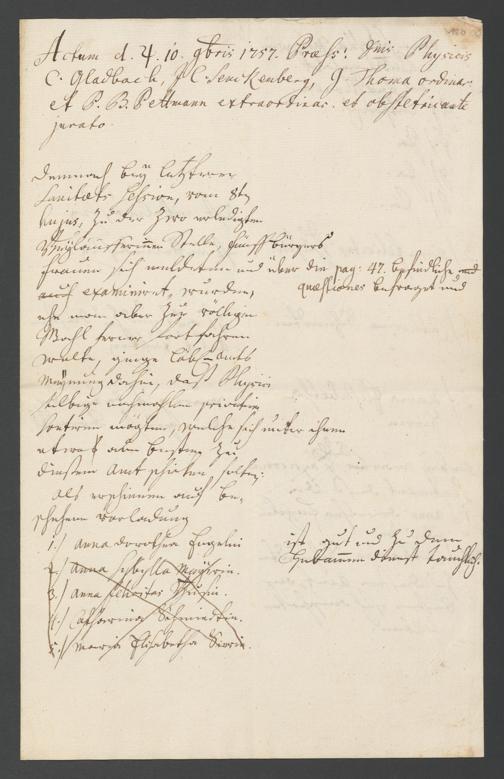 Actum d. 4. 10. 9bris 1757. Præss: Dnis Physicis
C. Gladbach, J. C. Senckenberg, J. Thoma ordinar.
et P. B. Pettmann extraordinar. et obstetricante
jurato.
Demnach bey letzterer
Sanitæts Session, vom 8ten
hujus, zu der zwo erledigten
Stelle, fünff bürgers
Frauen sich meldeten und über die pag: 47. befindliche
quæstiones befraget und
examiniret, wurden,
ehe man aber zur völligen
Wahl ferner fortfahren
wolte, gienge Löbl. Amts
Meynung dahin, daß Physici
selbige nochmahlen privatim
möchten, welche sich unter ihnen
etwas am besten zu
diesem Amt schicken solte;
Als erschienen auf be-
schehene Vorladung
1.) Anna Dorothea Engelin
ist gut und zu dem
Hebammen dienst tauchlich.
2.) Anna Sybylla Mayerin.
3.) Anna Felicitas
4.) Catharina Schmiedtin.
5.) Maria Elisabetha